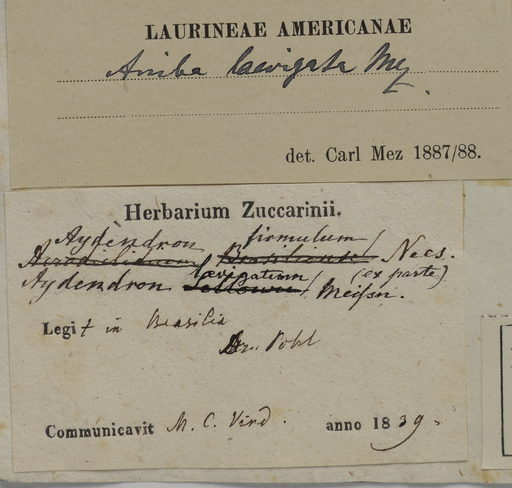 LAURINEAE AMERICANAE
Aniba laevigata Mez
det. Carl Mez 1887/88.
Herbarium Zuccarinii.
Aydendron firmulum
Nees.
Aydendron laevigatum (ex parte)
Meissn.
Legit in Brasilia
Dr. Pohl
Communicavit M. C. Vind. anno 1839.